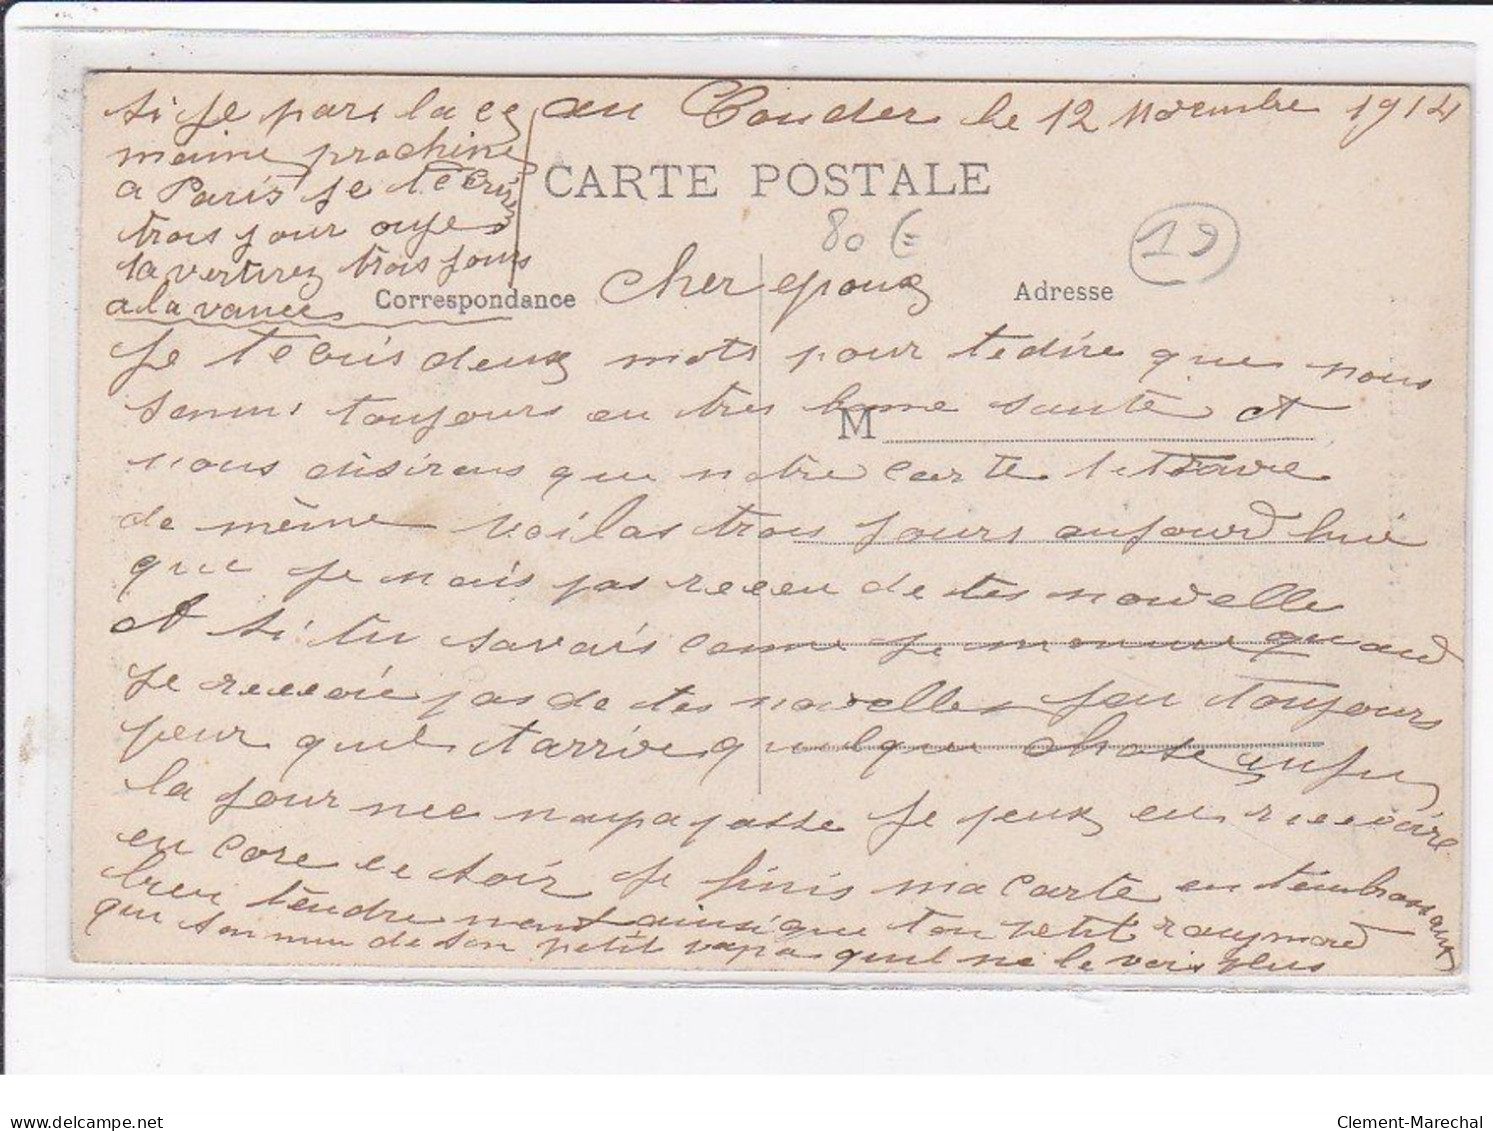 au Couder le 12 Novembre 1914
si je pars la ce
maine prochine
a Paris je técrire
trois jour ouje
ta vertirez trois jours
a la vance
CARTE POSTALE
80 €
19
Correspondance
Adresse
Cher epoux
Je técris deux mots pour te dire que nous
somms toujours en tres bonne santé et
M
nous désirons que notre carte te trouve
de même voilas trois jours aujourd hui
que je nais pas reccu de tes nouvelle
et si tu savais comme je mennuie quand
je reccoie pas de tes nouvelles jeu toujours
peur quil tarrive quelque chose enfin
la journee napapasse je peux en reccoire
en core ce soir je finis ma carte en tembrassant
bien tendrement ainsique ton petit raymond
qui sannuie de son petit papa quil ne le vois plus
Clement-Marechal
delcampe.net